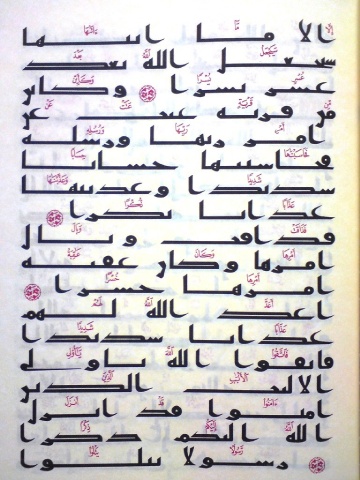 الا ما اتىها
سيجعل الله بعد
عسر يسرا وكاين
من قرية عتت عن
امر ربها ورسله
فحاسبنها حسابا
شديدا وعذبنها
عذابا نكرا
فذاقت وبال
امرها وكان عقبة
امرها خسرا
اعد الله لهم
عذابا شديدا
فاتقوا الله ياولي
الالبب الذين
امنوا قد انزل
الله اليكم ذكرا
رسولا يتلوا